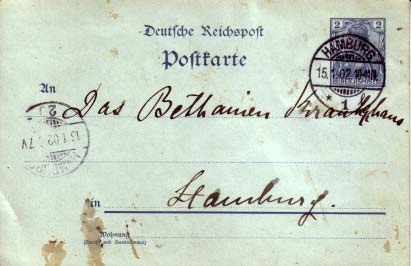 Deutsche Reichspost
Postkarte
2 2
HAMBURG
15.1.02.10-11V
* 1
An
Das Bethanien Krankenhaus.
in Hamburg.
Wohnung
(Straße und Hausnummer)